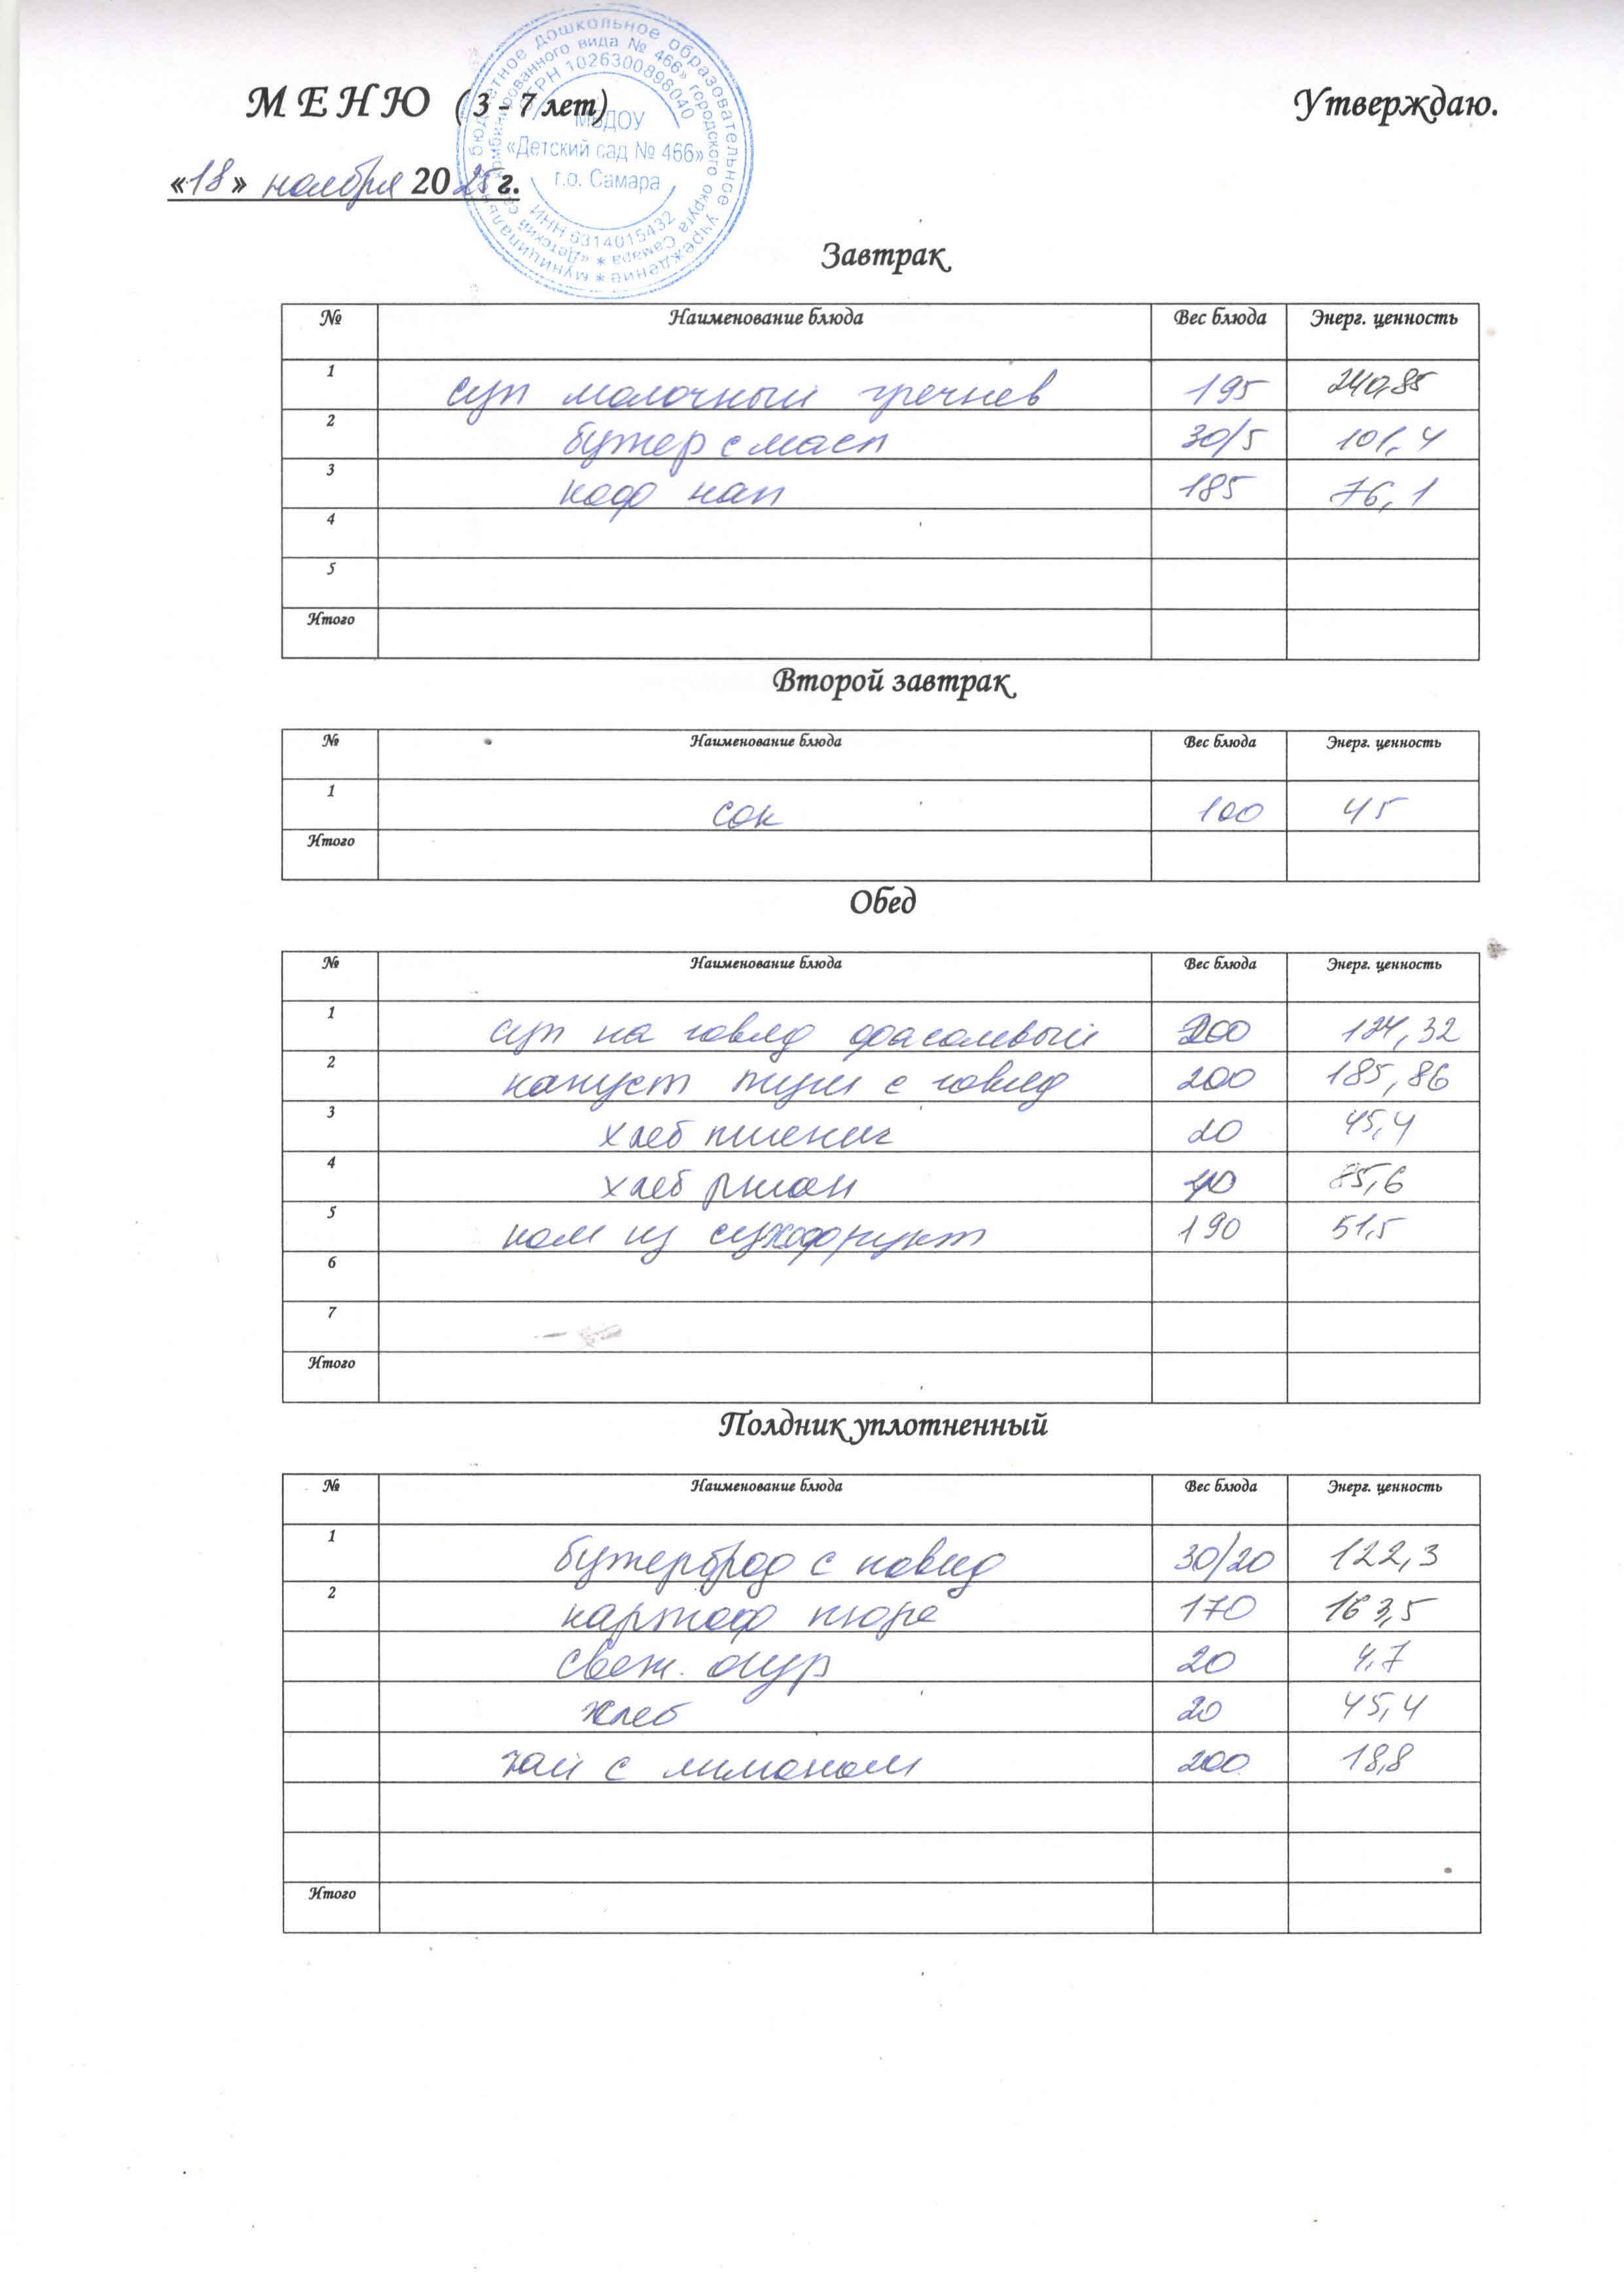 М Е Н Ю ( 3 - 7 лет) Утверждаю.
«18» ноября 2025 г.
муниципальное бюджетное дошкольное образовательное учреждение
«Детский сад комбинированного вида № 466» городского округа Самара
ОГРН 1026300898040
МБДОУ
«Детский сад № 466»
г.о. Самара
ИНН 6314015432
Завтрак
№ Наименование блюда Вес блюда Энерг. ценность
1 суп молочный гречнев 195 240,85
2 бутер с масл 30/5 101,4
3 коф нап 185 76,1
4
5
Итого
Второй завтрак
№ Наименование блюда Вес блюда Энерг. ценность
1 сок 100 45
Итого
Обед
№ Наименование блюда Вес блюда Энерг. ценность
1 суп на говяд фасолевый 200 124,32
2 капуст туш с говяд 200 185,86
3 хлеб пшенич 20 45,4
4 хлеб ржан 40 85,6
5 ком из сухофрукт 190 51,5
6
7
Итого
Полдник уплотненный
№ Наименование блюда Вес блюда Энерг. ценность
1 бутерброд с повид 30/20 122,3
2 картоф пюре 170 163,5
свеж. огур 20 4,7
хлеб 20 45,4
чай с лимоном 200 18,8
Итого